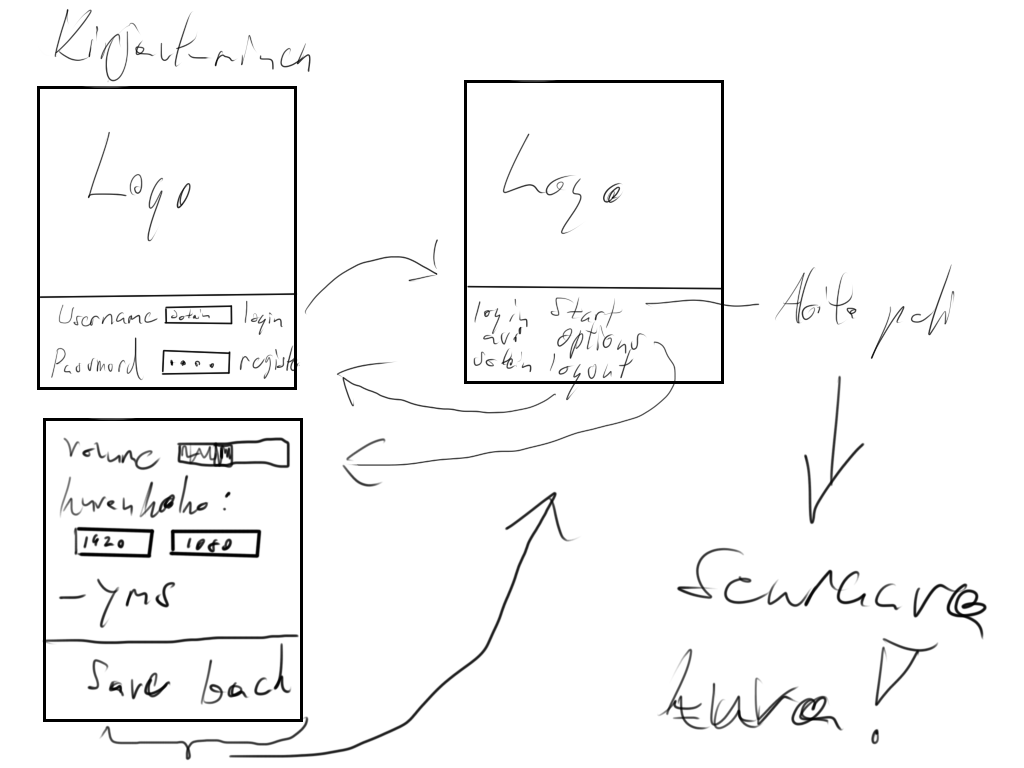 Logo
Username login
Password
Logo
login Start
avi options
logout
Aloita peli
Volume
kuvankoko:
1920 1080
- Yms
Save back
Seuraava
kuva!